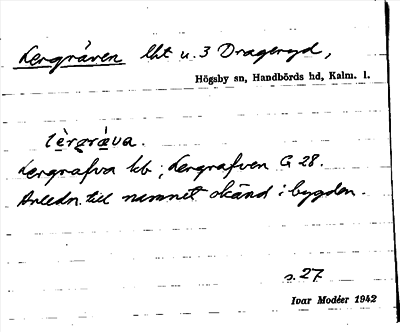 Lergräven lht u. 3 Drageryd,
Högsby sn, Handbörds hd, Kalm. l.
lèrgràva.
Lergrafva kb; Lergrafven G 28.
Anledn. till namnet okänd i bygden.
s. 27
Ivar Modéer 1942